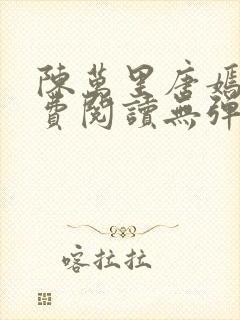 陳萬里唐嫣
費閱讀無彈
喀拉拉